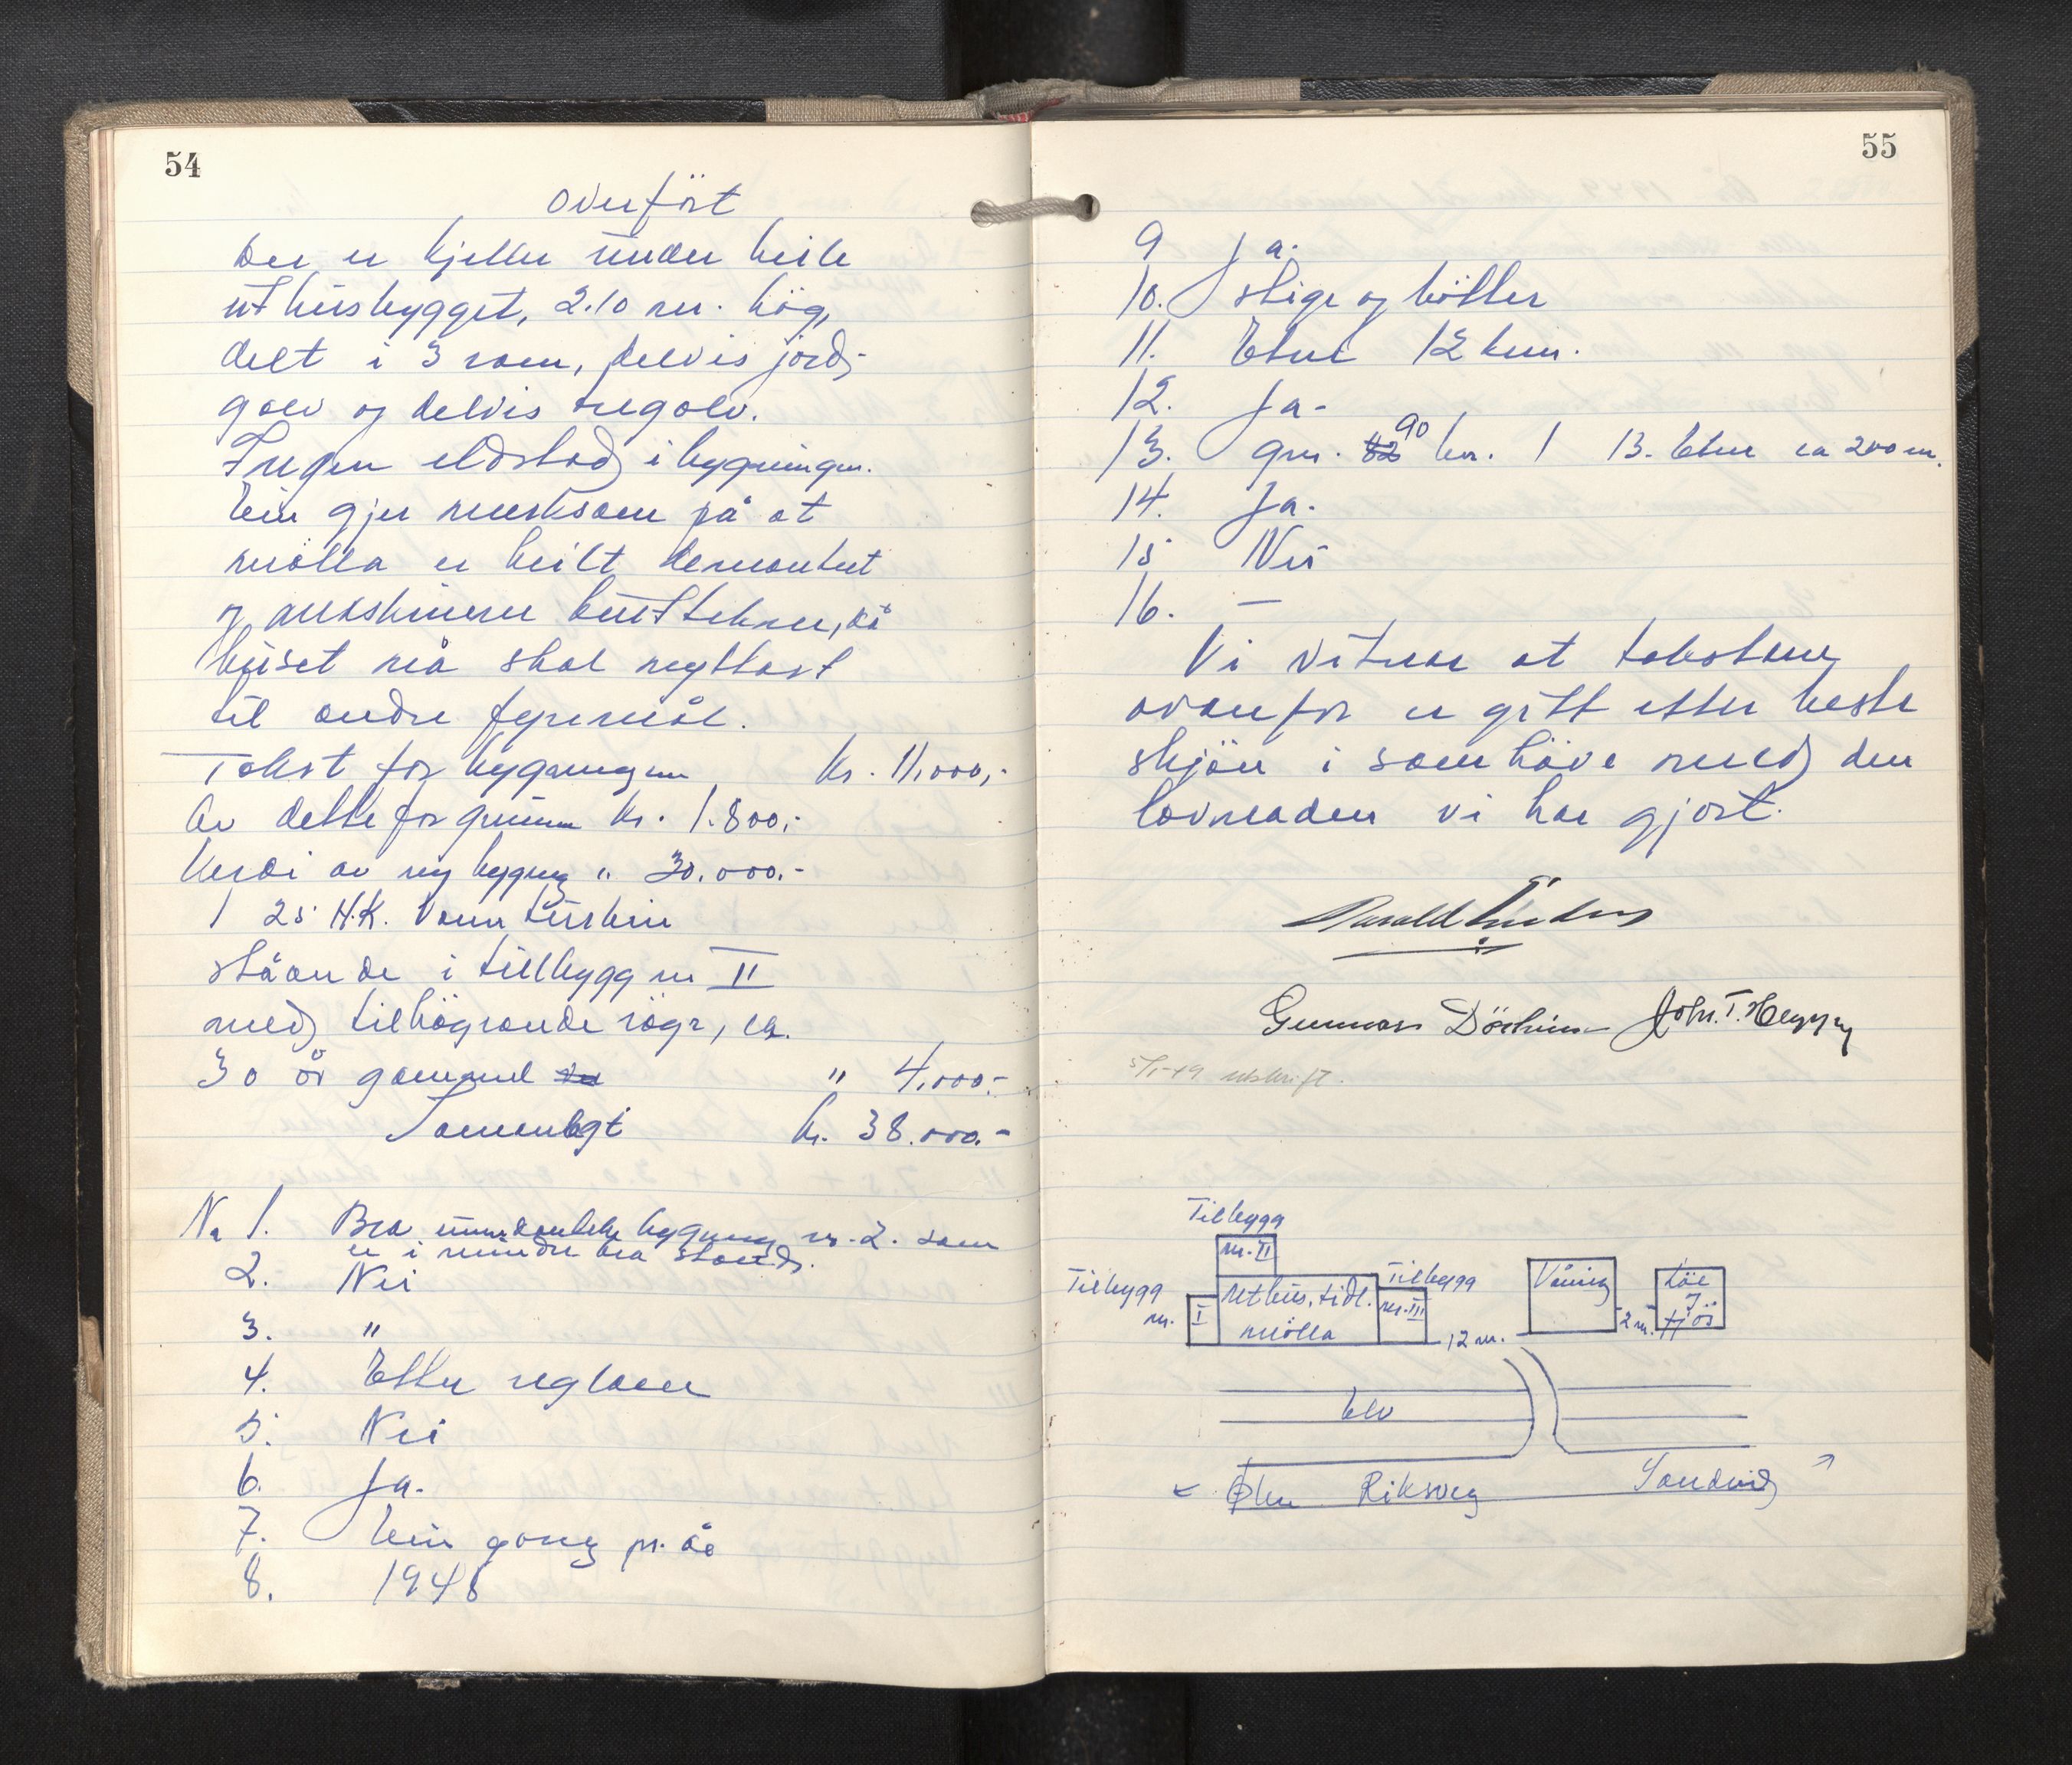 54
overfört
Der er kjeller under heile
uthusbygget, 2.10 m. hög,
delt i 3 rom, delvis jord-
golv og delvis tregolv.
Ingen eldstad i bygningen.
Ein gjer merksam på at
mölla er heilt demontert
og maskinene burttekne, då
huset nå skal nyttast
til andre fyremål.
Takst for bygningen kr. 11.000,-
Av dette for grunn kr. 1.800,-
Verdi av ny bygning " 30.000.-
1 25 H.K. Vann turbin
ståande i tilbygg nr II
med tilhöyrande röyr, ca.
30 år gammel " 4.000.-
Samanlagt kr. 38.000.-
Nr 1. Bra unntanteke bygning nr. 2. som
er i mindre bra stand.
2. Nei
3. "
4. Etter reglane
5. Nei
6. Ja.
7. Ein gong pr. år
8. 1948
55
9 Ja.
10. Stige og bötter
11. Etne 12 km.
12. Ja-
13. gnr. 90 bnr. 1 13. Etne ca 200 m.
14. Ja.
15 Nei
16. —
Vi vitnar at takstane
ovanfor er gitt etter beste
skjön i samhöve med den
lovnaden vi har gjort.
Gunnar John. T.
5/1-49 utskrift.
Tilbygg
nr. II
Tilbygg
nr. I
uthus, tidl.
mölla
Tilbygg
nr. III
12 m.
Våning
2 m.
Löe
og
fjös
Elv
Ølen Riksveg Sandeid